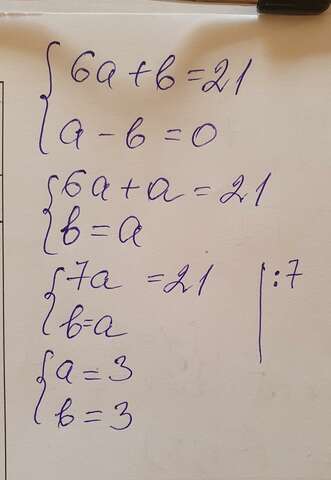 6a + b = 21
a - b = 0
6a + a = 21
b = a
7a = 21 | :7
b = a
a = 3
b = 3